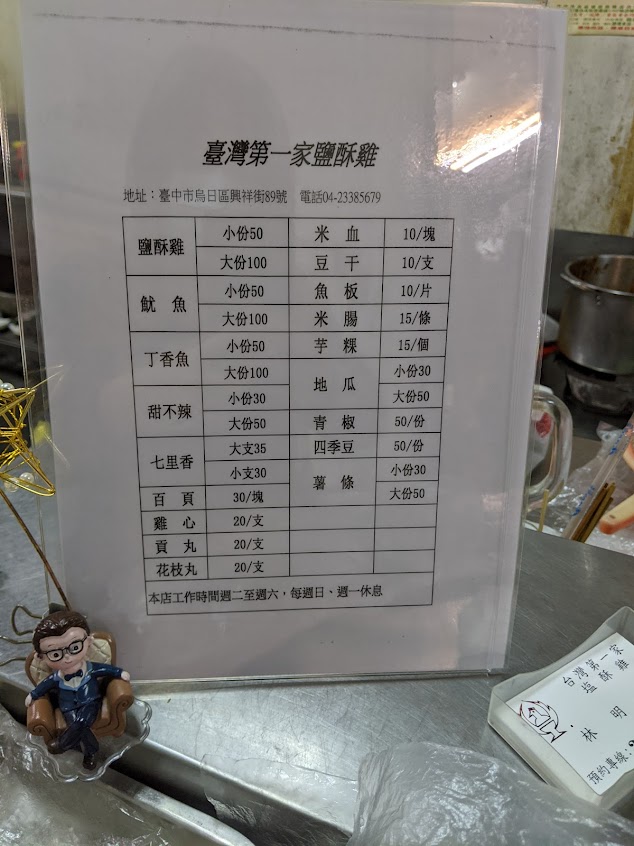 臺灣第一家鹽酥雞
地址：臺中市烏日區興祥街89號 電話04-23385679
鹽酥雞 小份50 米血 10/塊
大份100 豆干 10/支
魷魚 小份50 魚板 10/片
大份100 米腸 15/條
丁香魚 小份50 芋粿 15/個
大份100 地瓜 小份30
甜不辣 小份30 大份50
大份50 青椒 50/份
七里香 大支35 四季豆 50/份
小支30 薯條 小份30
百頁 30/塊 大份50
雞心 20/支
貢丸 20/支
花枝丸 20/支
本店工作時間週二至週六，每週日、週一休息
台灣第一家
塩酥雞
林明
預約專線：